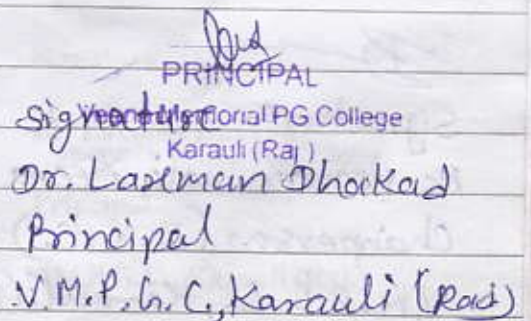 PRINCIPAL
Veena Memorial PG College
Signature
Karauli (Raj)
Dr. Laxman Dhakad
Principal
V.M.P.G.C., Karauli (Raj)